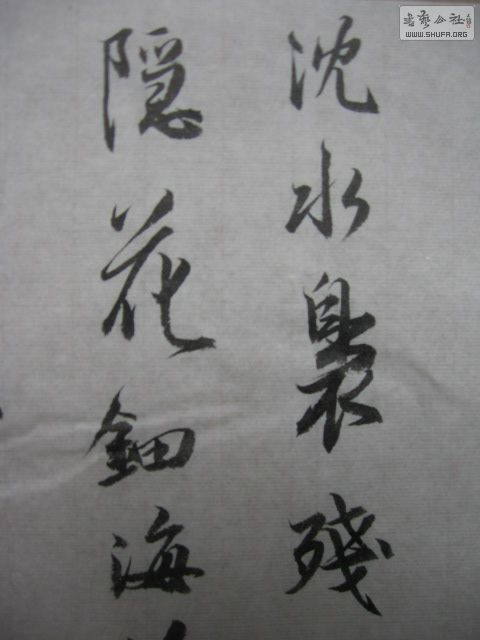 沈水裊殘
隐花鈿海
书艺公社
WWW.SHUFA.ORG